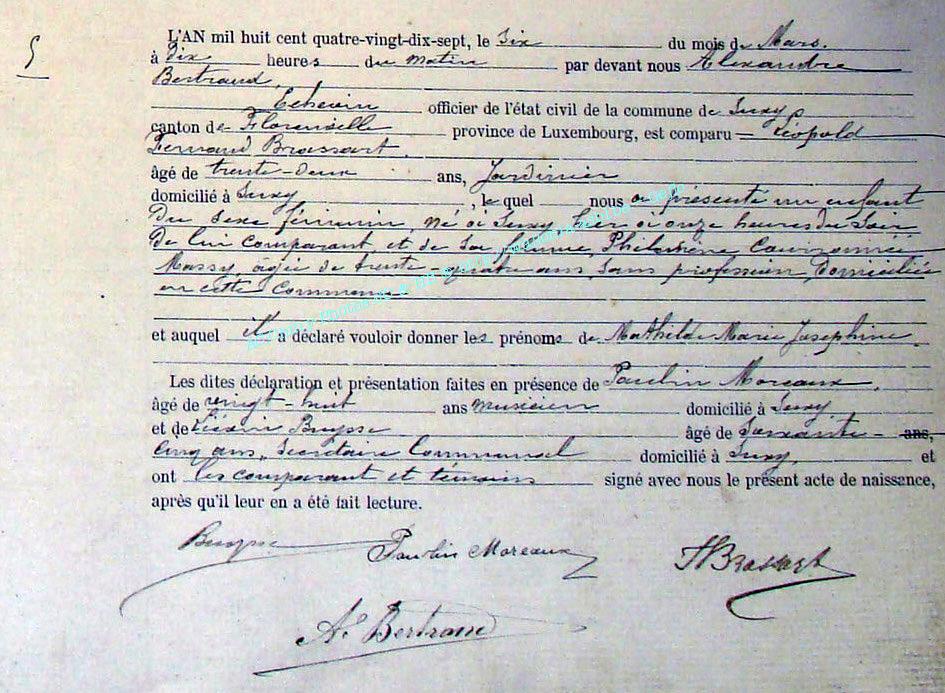 5
L'AN mil huit cent quatre-vingt-dix-sept, le Six du mois de Mars.
à dix heures du matin par devant nous Alexandre
Bertrand,
Echevin officier de l'état civil de la commune de Suxy,
canton de Florenville province de Luxembourg, est comparu Léopold
Fernand Brassart.
âgé de trente-deux ans, Jardinier
domicilié à Suxy, le quel nous a présenté un enfant
du sexe féminin, né à Suxy, hier à onze heures du Soir,
de lui comparant et de Sa femme, Philomène
Massy, âgée de trente-quatre ans, Sans profession, domiciliée
en cette Commune
et auquel il a déclaré vouloir donner les prénoms de Mathilde Marie Josephine.
Les dites déclaration et présentation faites en présence de Paulin Moreaux,
âgé de vingt-huit ans musicien domicilié à Suxy
et de Buysse âgé de Soixante- ans,
Cinq ans, Secrétaire Communal domicilié à Suxy, et
ont les comparant et témoins signé avec nous le présent acte de naissance,
après qu'il leur en a été fait lecture.
Buysse Paulin Moreaux FBrassart
A. Bertrand